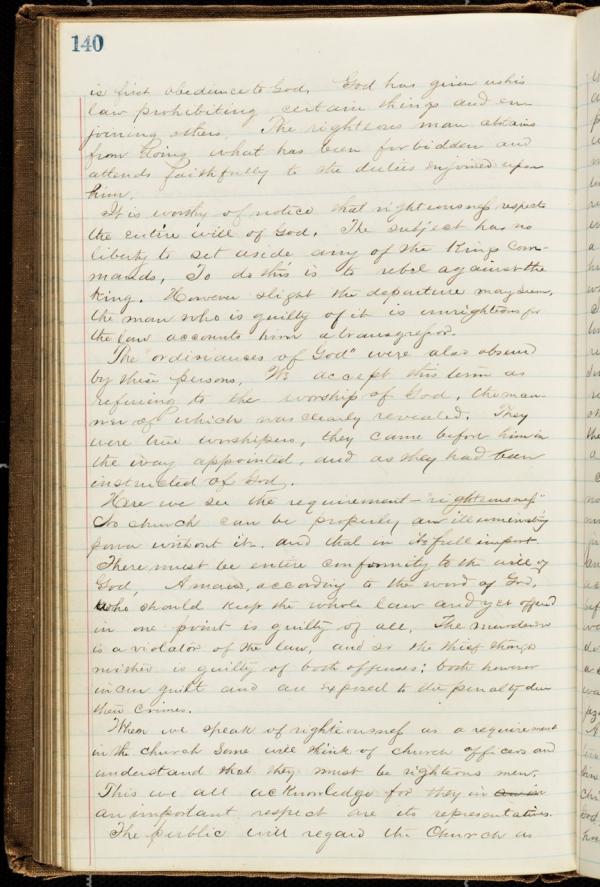 140
is first obedience to God. God has given us his
law prohibiting certain things and en-
joining others. The righteous man abtains
from doing what has been forbidden and
attends faithfully to the duties enjoined upon
him.
It is worthy of notice that righteousness respects
the entire will of God. The subject has no
liberty to set aside any of the Kings com-
mands, To do this is to rebel against the
king. However slight the departure may seem,
the man who is guilty of it is unrighteous for
the law accounts him a transgressor.
The "ordinances of God" were also observed
by these persons. We accept this term as
referring to the worship of God, the man-
ner of which was clearly revealed. They
were true worshipers, they came before him in
the way appointed, and as they had been
instructed of God.
Here we see the requirement - "righteousness"
No church can be properly an illuminating
power without it - and that in its full import.
There must be entire conformity to the will of
God, A man, according to the word of God,
who should keep the whole law and yet offend
in one point is guilty of all. The murderer
is a violator of the law, and so the thief though
neither is guilty of both offenses; both however
incur guilt and are exposed to the penalty due
their crimes.
When we speak of righteousness as a requirement
in the church some will think of church officers and
understand that they must be righteous men.
This we all acknowledge for they in
an important respect are its representatives.
The public will regard the Church as